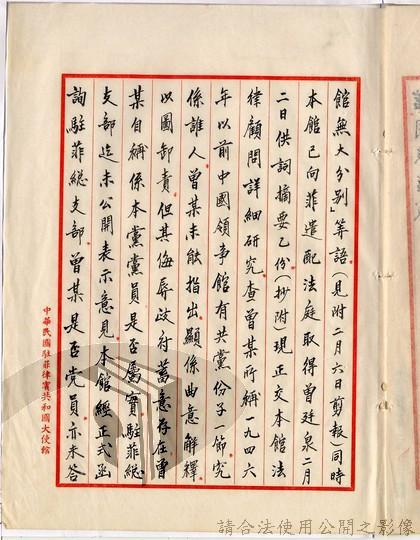 館無大分別」等語(見附二月六日剪報同時
本館已向菲遣配法庭取得曾廷泉二月
二日供詞摘要乙份(抄附)現正交本館法
律顧問詳細研究查曾某所稱一九四六
年以前中國領事館有共黨份子一節究
係誰人曾某未能指出顯係曲意解釋
以圖卸責但其侮辱政府蓄意存在曾
某自稱係本黨黨員是否屬實駐菲總
支部迄未公開表示意見本館經正式函
詢駐菲総支部曾某是否党員亦未答
中華民國駐菲律賓共和國大使館
請合法使用公開之影像